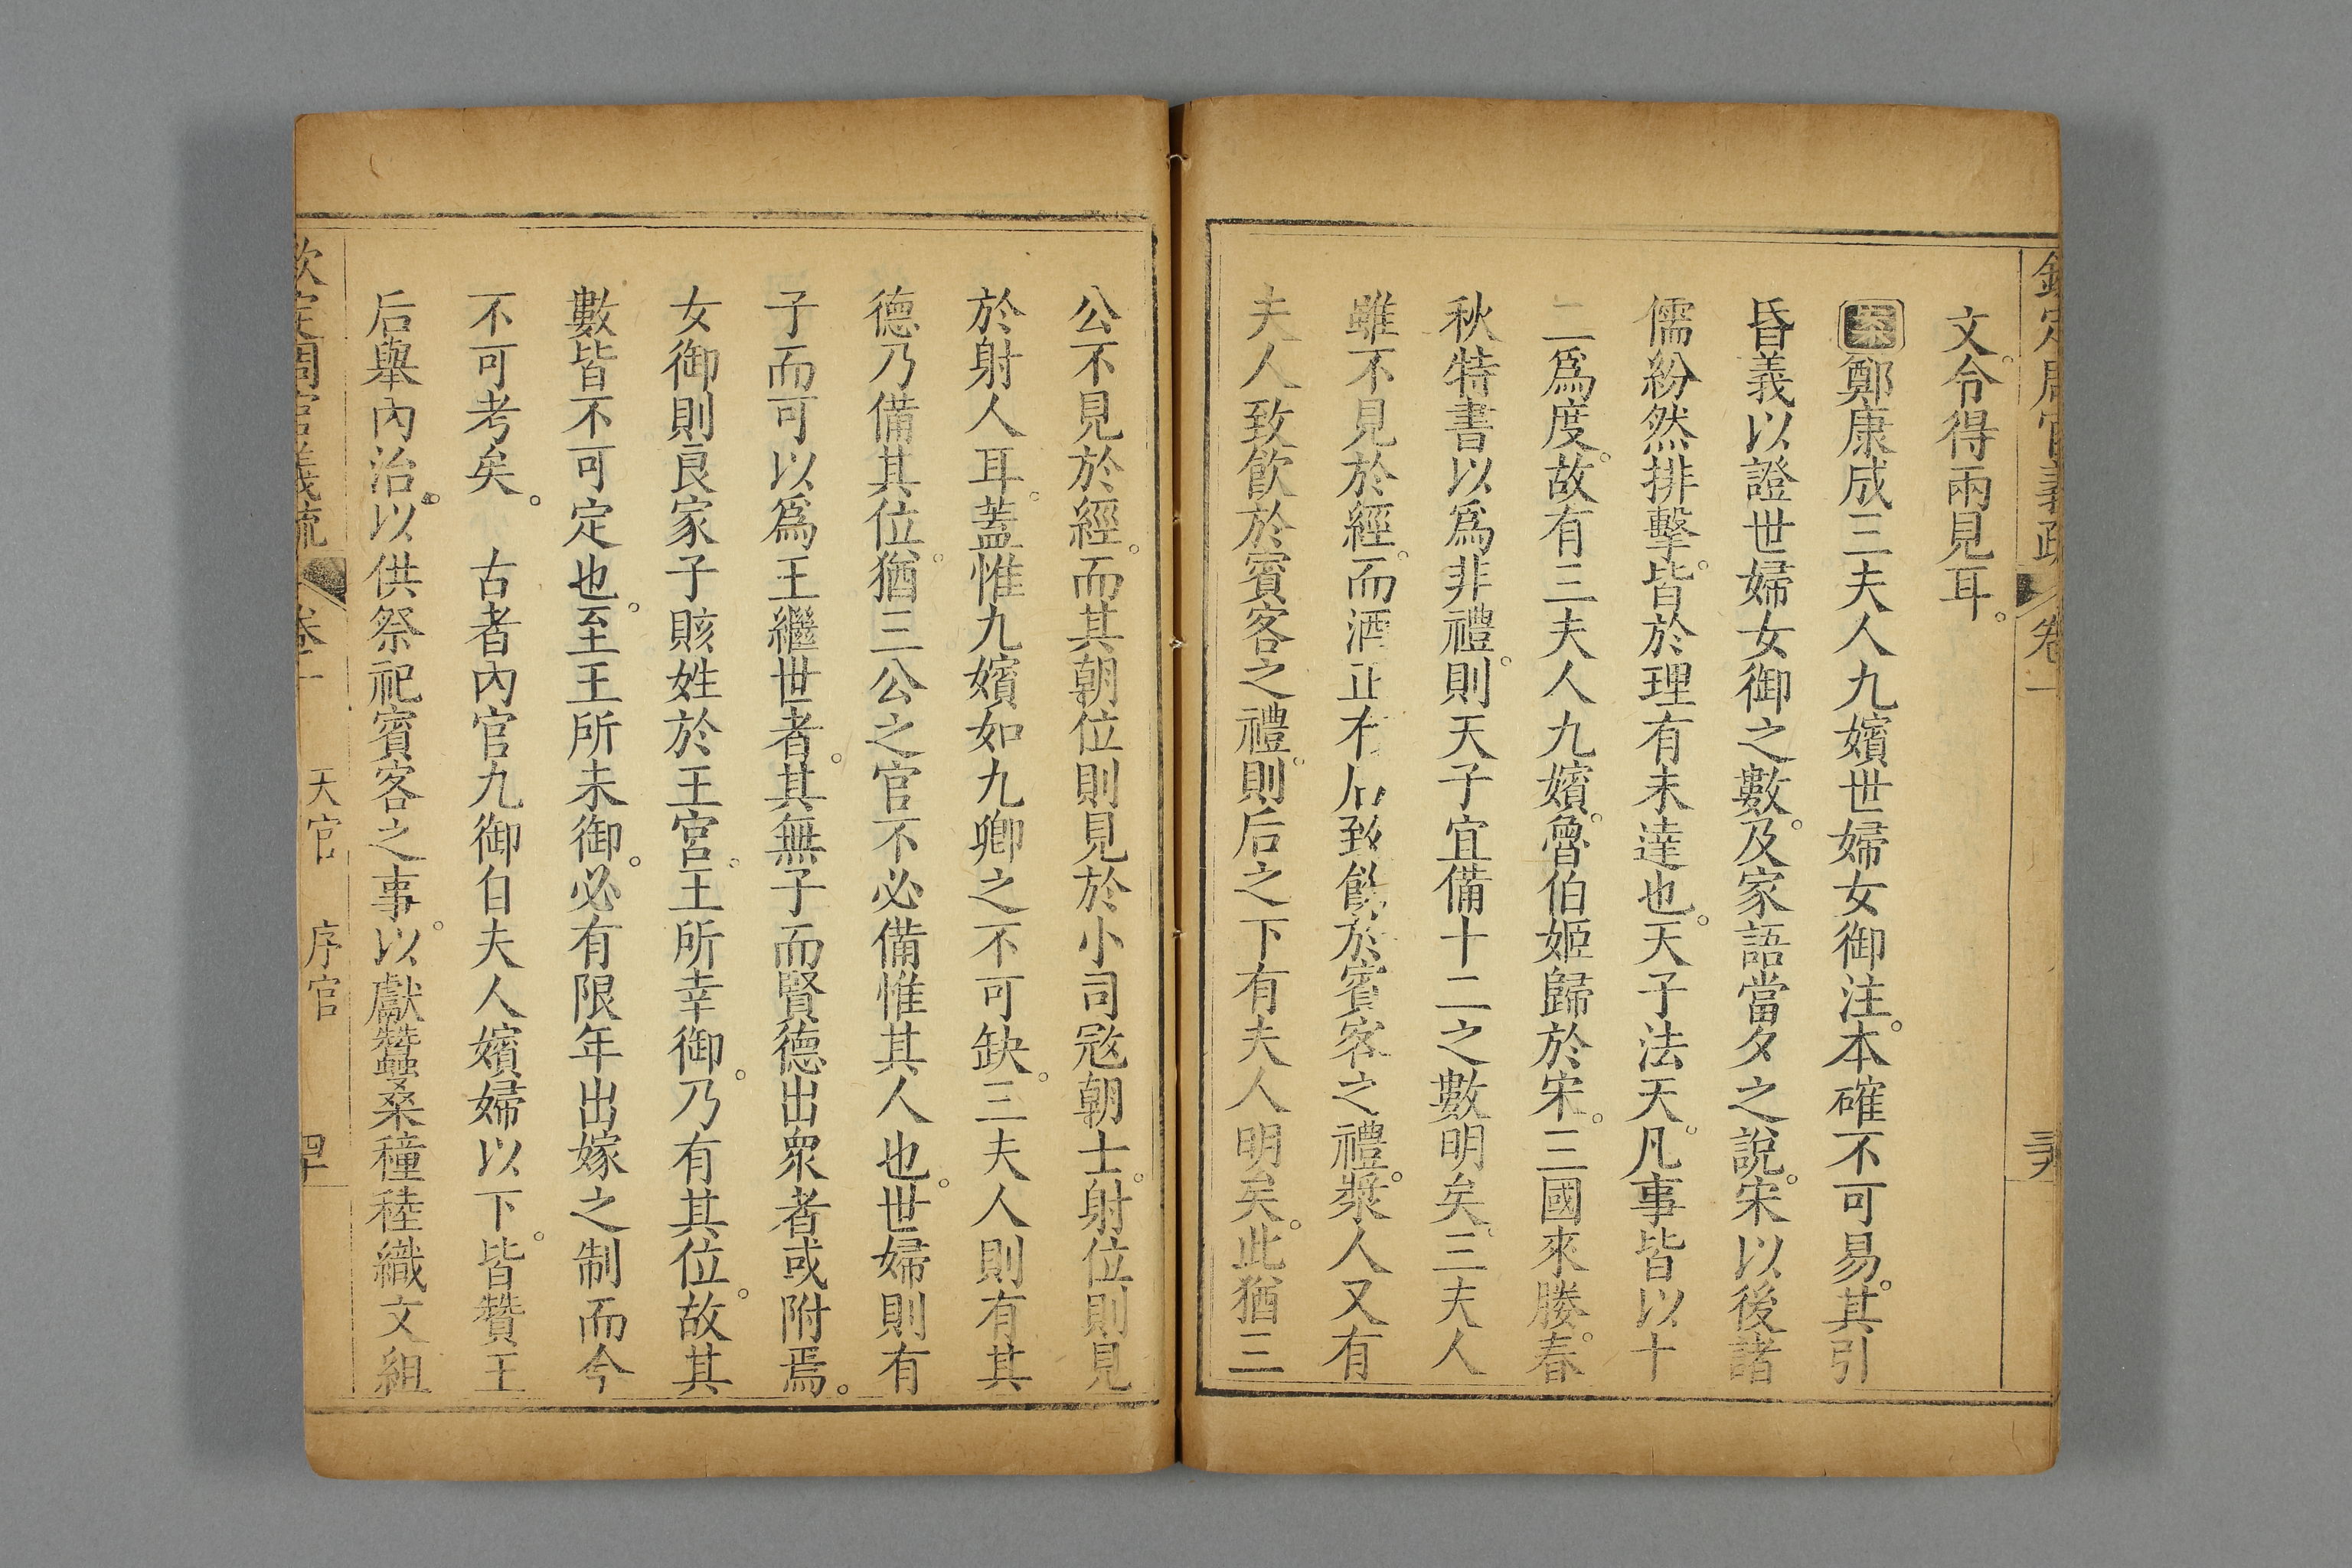 欽定周官義疏 卷一 三十九
文。令得兩見耳。
案鄭康成三夫人九嬪世婦女御注。本確不可易。其引
昏義以證世婦女御之數。及家語當夕之說。宋以後諸
儒紛然排擊。皆於理有未達也。天子法天。凡事皆以十
二爲度。故有三夫人九嬪。魯伯姬歸於宋。三國來媵。春
秋特書以爲非禮。則天子宜備十二之數明矣。三夫人
雖不見於經。而酒正有后致飲於賓客之禮。漿人又有
夫人致飲於賓客之禮。則后之下有夫人明矣。此猶三
公不見於經。而其朝位則見於小司寇朝士。射位則見
於射人耳。蓋惟九嬪如九卿之不可缺。三夫人則有其
德乃備其位。猶三公之官不必備惟其人也。世婦則有
子而可以爲王繼世者。其無子而賢德出衆者或附焉。
女御則良家子賅姓於王宮。王所幸御。乃有其位。故其
數皆不可定也。至王所未御。必有限年出嫁之制而今
不可考矣。 古者內官九御自夫人嬪婦以下。皆贊王
后舉內治。以供祭祀賓客之事。以獻蠶桑穜稑織文組
欽定周官義疏 卷一 天官 序官 四十